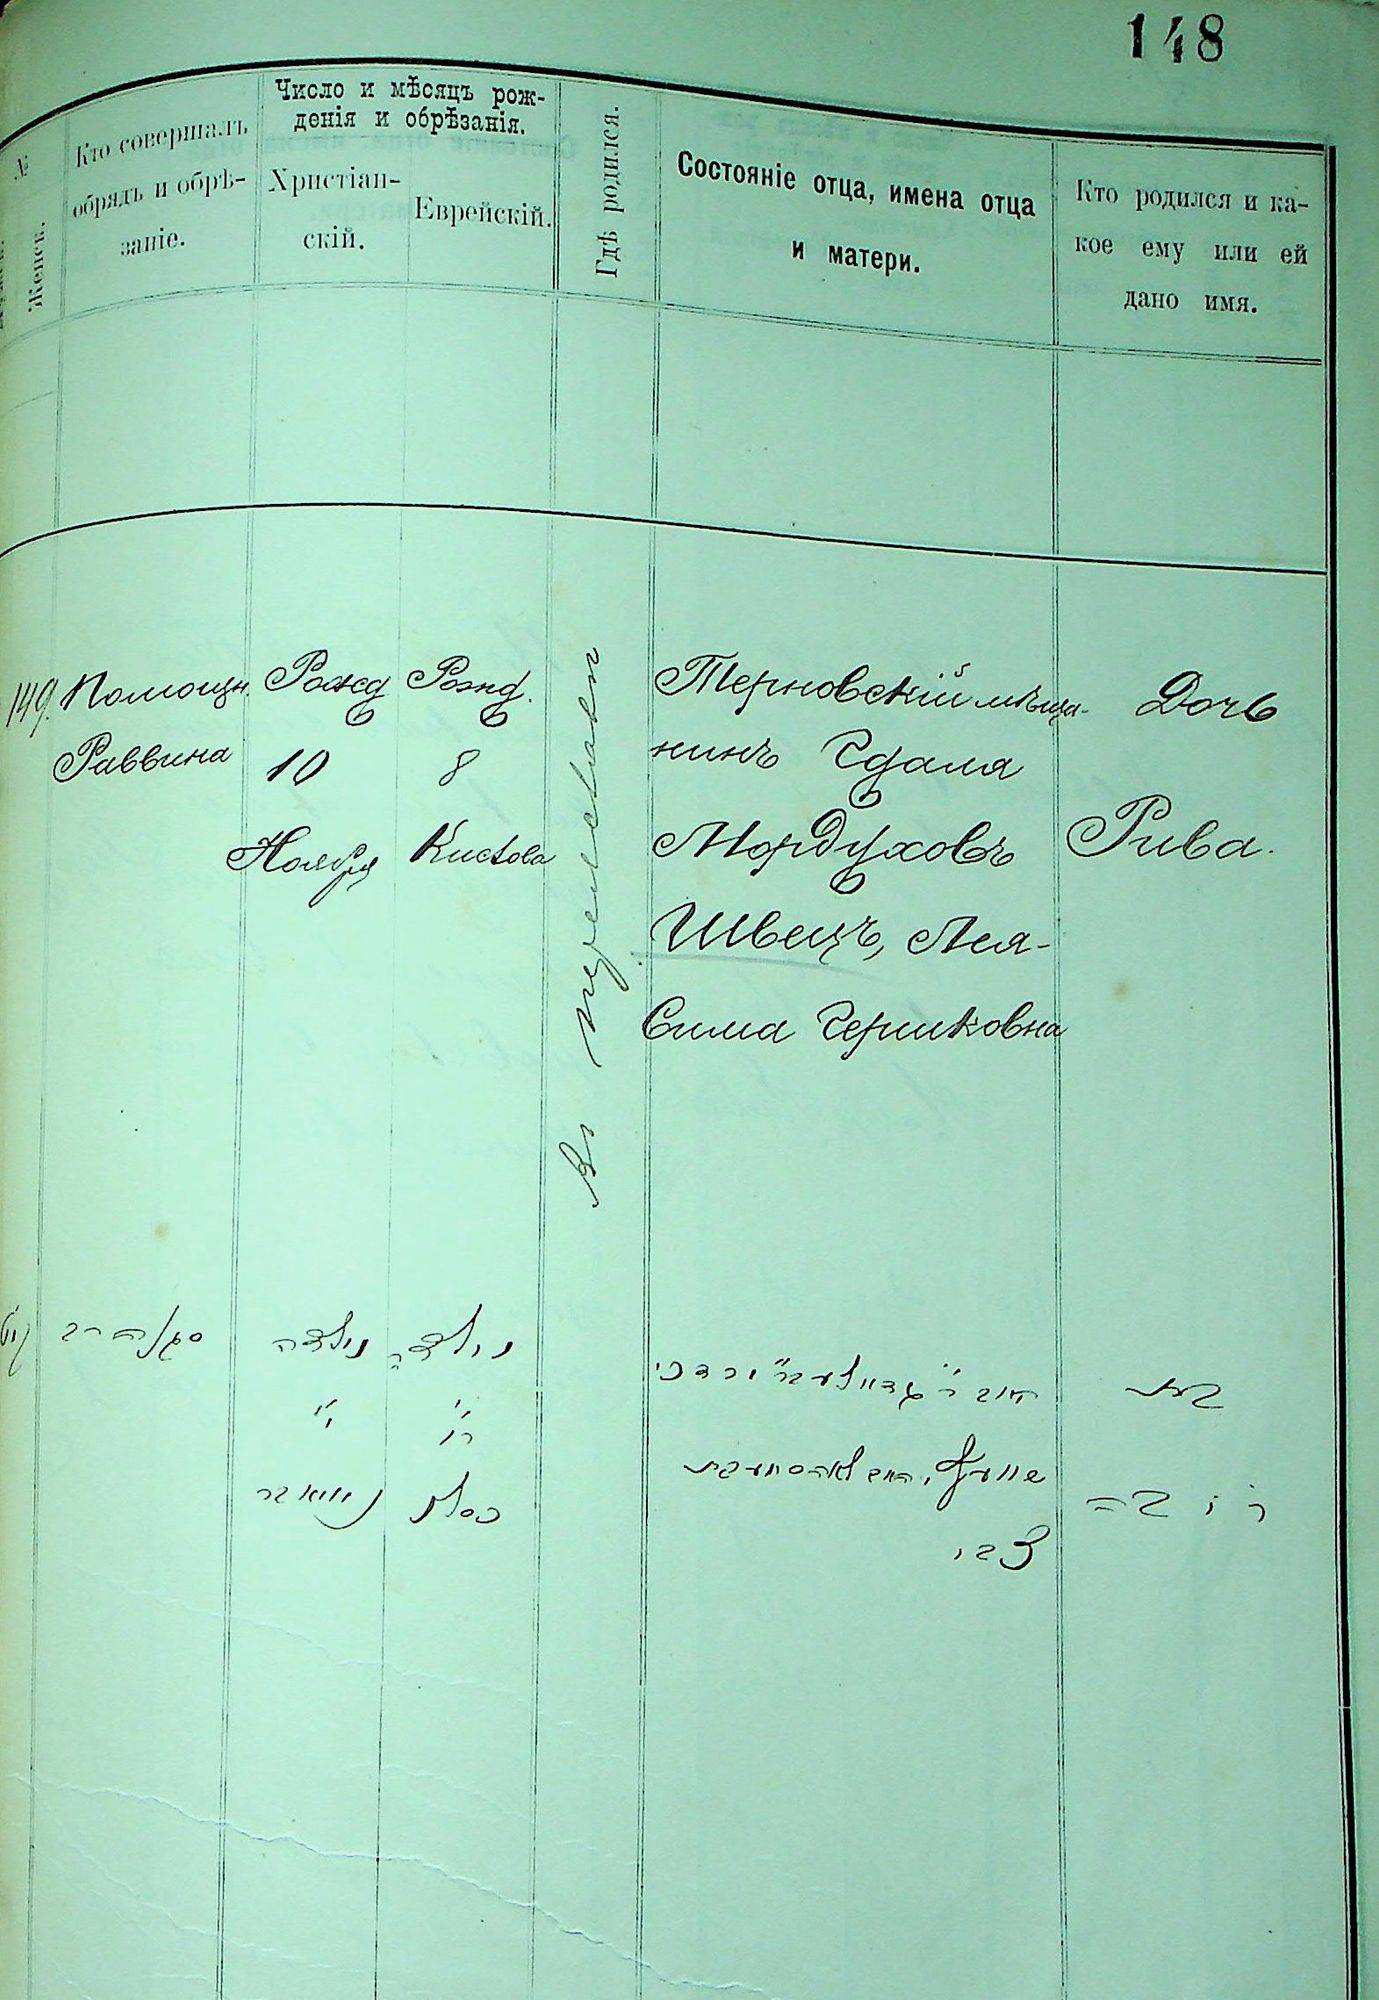 148
№
Женск.
Кто совершалъ
обрядъ и обрѣ-
заніе.
Число и мѣсяцъ рож-
денія и обрѣзанія.
Христіан-
скій.
Еврейскій.
Гдѣ родился.
Состояніе отца, имена отца
и матери.
Кто родился и ка-
кое ему или ей
дано имя.
149.
Помощн.
Раввина
Рожд
10
Ноября
Рожд.
8
Кислова
въ
Терновскій мѣща-
нинъ Гдаля
Мордуховъ
Швецъ, Лея-
Сима Гершковна
Дочь
Рива.
נולדה
י״
נולדה
ח׳
כסלו
שוועץ,
צבי
בת
ריבה